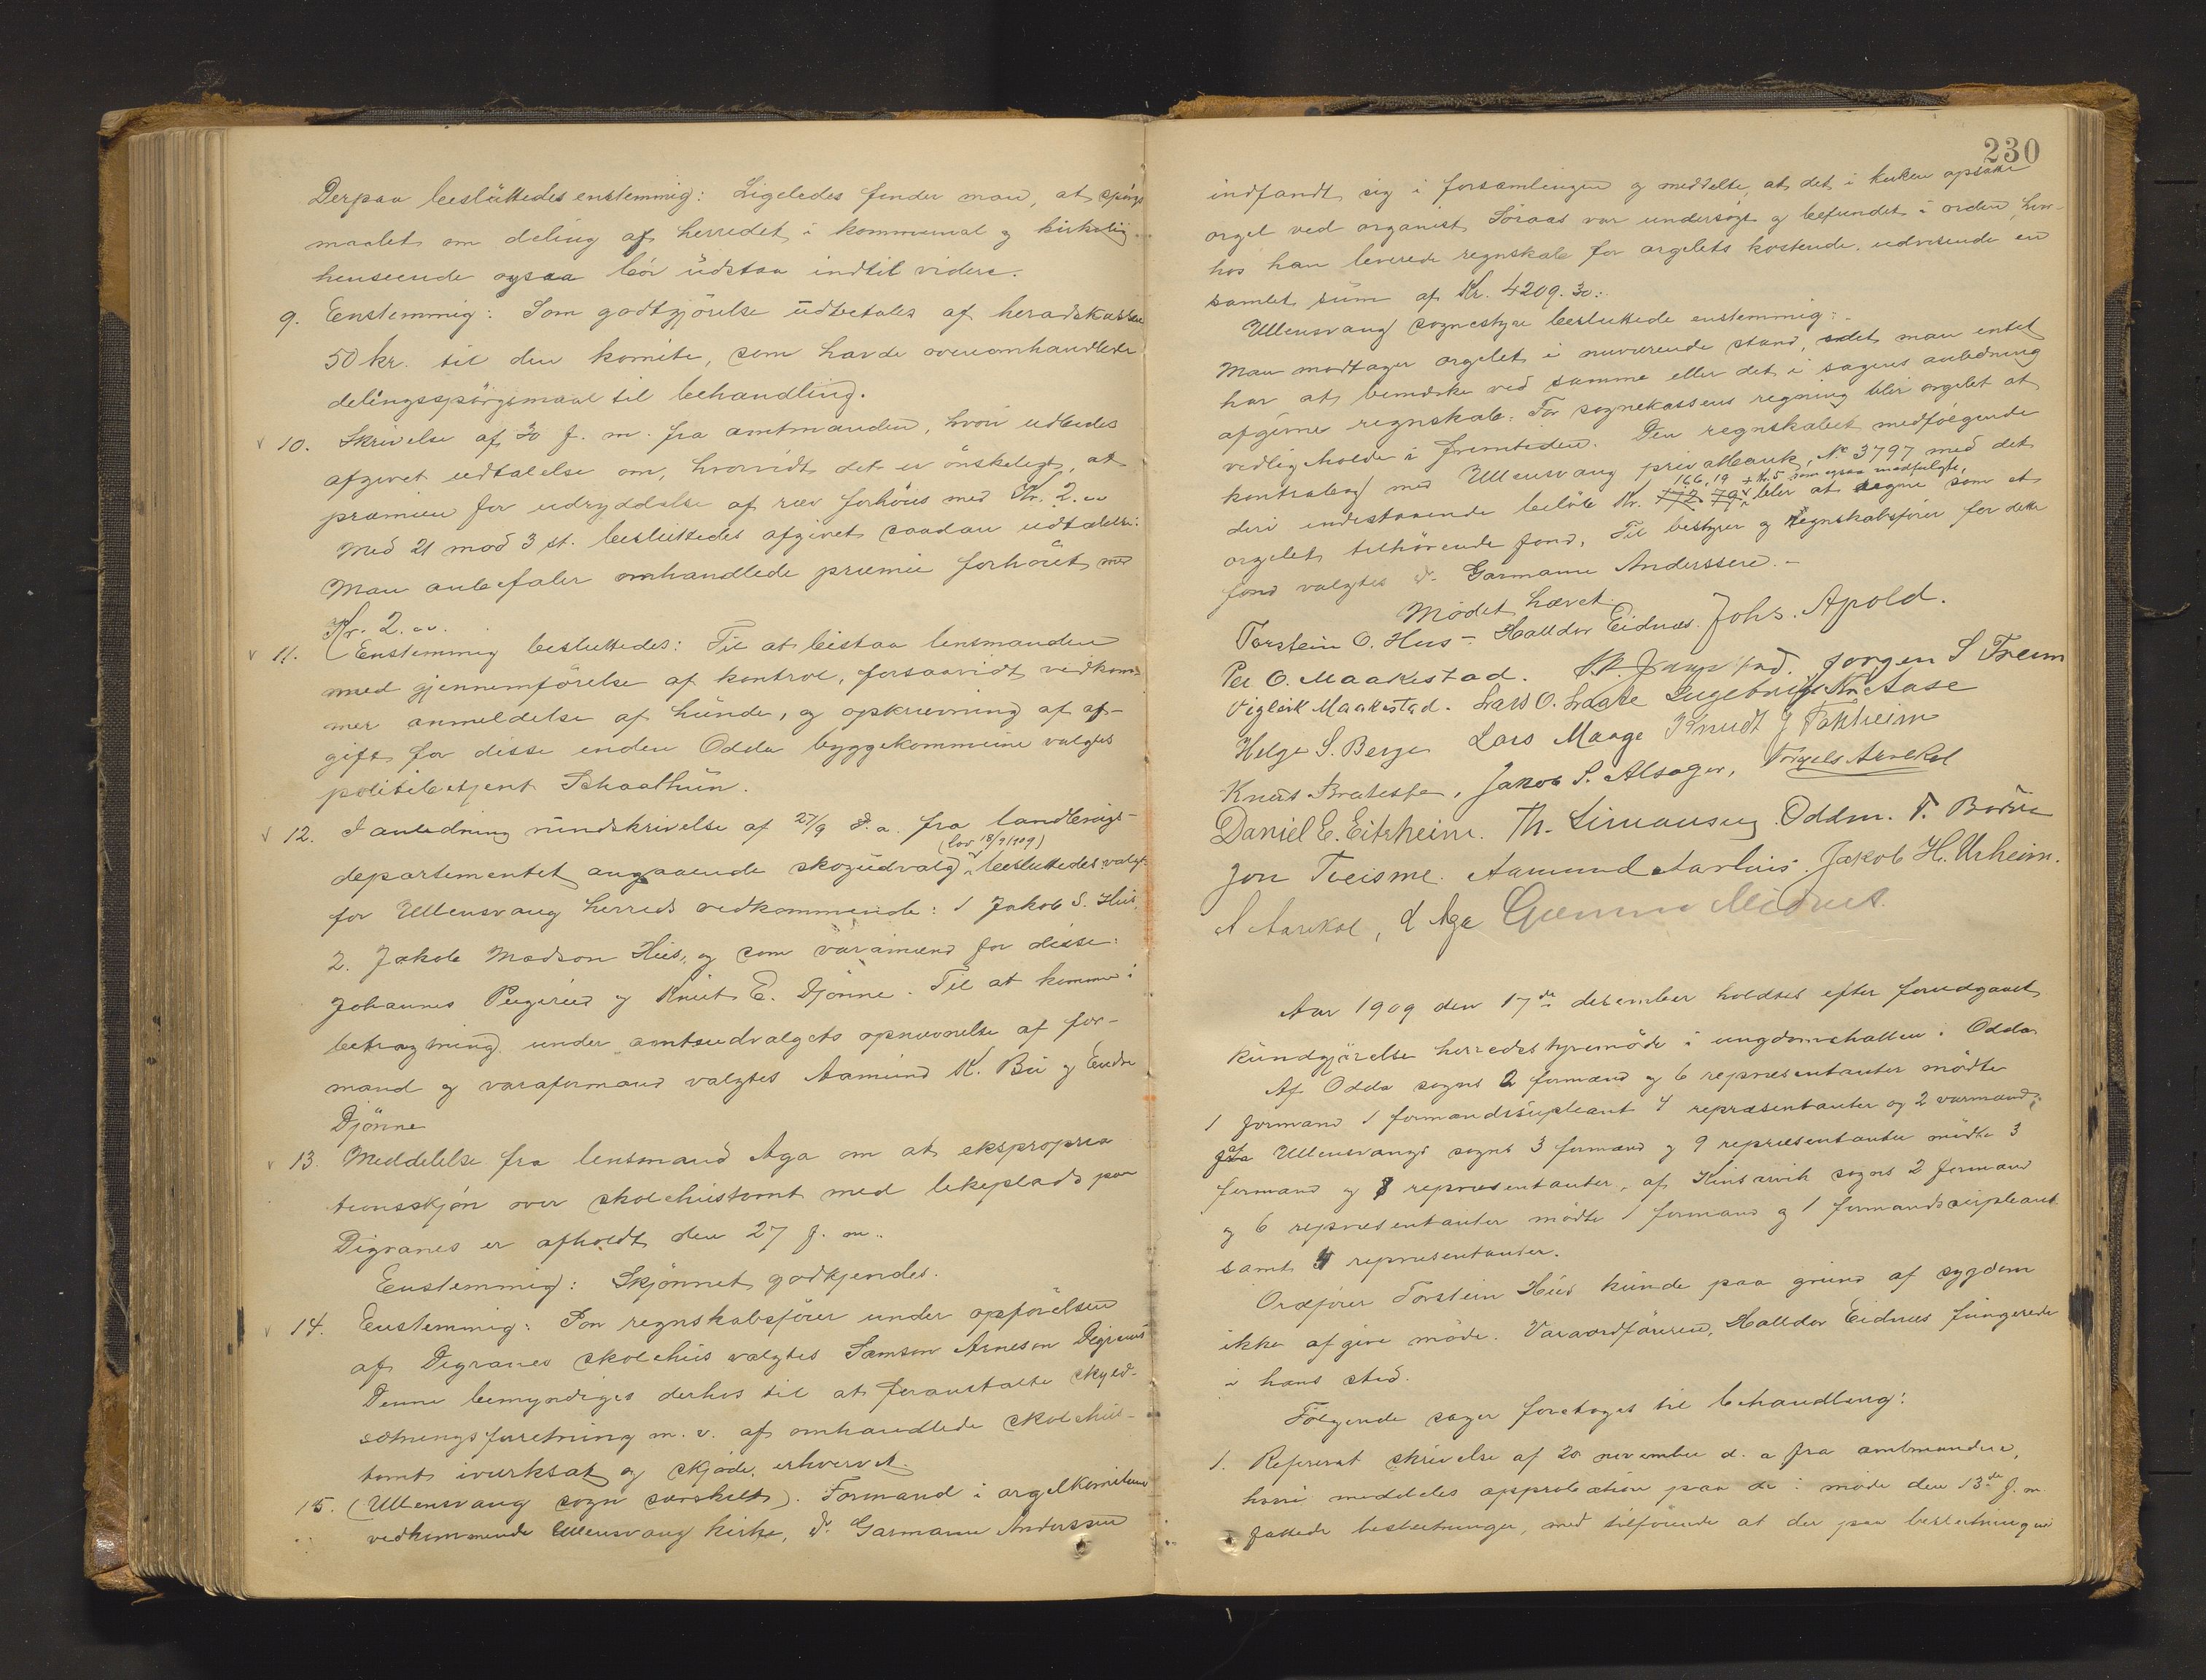 Derpaa besluttedes enstemmig: Ligeledes finder man, at spörgs
maalet om deling af herredet i kommunal g kirkelig
henseende ogsaa bör udstaa indtil videre.
9. Enstemmig: Som godtgjörelse udbetales af heradskassen
50 kr. til den komite, som havde ovenomhandlede
delingsspörgsmaal til behandling.
10. Skrivelse af 30 f. m. fra amtmanden, hvori udbedes
afgivet udtalelse om, hvorvidt det er önskeligt, at
præmien for udryddelse af ræv forhöies med Kr. 2.00
Med 21 mod 3 st. besluttedes afgivet saadan udtalelse:
Man anbefaler omhandlede præmie forhöiet med
Kr. 2.00.
11. Enstemmig besluttedes: Til at bistaa lensmanden
med gjennemförelse af kontrol, forsaavidt vedkom-
mer anmeldelse af hunde, og opkrævning af af-
gift for disse inden Odda byggekommune valgtes
politibetjent Schaathun.
12. I anledning rundskrivelse af 27/9 d. a. fra landbrugs-
(lov 18/9 1909)
departementet angaaende skogudvalg besluttedes valgt
for Ullensvang herreds vedkommende: 1 Jakob S. Hus,
2. Jakob Madson Hus, og som varamænd for disse:
Johannes Peigerud g Knut E. Djönne. Til at komme i
betragtning under amtsudvalgets opnævnelse af for-
mand og varaformand valgtes Aamund K. Bu g Endre
Djönne
13. Meddelelse fra lensmand Aga om at ekspropria
tionsskjön over skolehustomt med lekeplads paa
Digranes er afholdt den 27 f. m..
Enstemmig: Skjönnet godkjendes.
14. Enstemmig: Som regnskabsförer under opförelsen
af Digranes skolehus valgtes Samson Arneson Digranes
Denne bemyndiges derhos til at foranstalte skyld-
sætningsforretning m. v. af omhandlede skolehus-
tomt iverksat og skjöde erhvervet.
15. (Ullensvang sogn særskilt). Formand i orgelkomiteen
vedkommende Ullensvang kirke, Dr. Garmann Anderssen
230
indfandt sig i forsamlingen og meddelte, at det i kirken opsatte
orgel ved organist Söraas var undersögt g befundet i orden, hvor-
hos han leverede regnskab for orgelets kostende, udvisende en
samlet sum af Kr. 4209.30.
Ullensvang sognestyre besluttede enstemmig:
Man modtager orgelet i nuværende stand, idet man intet
har at bemærke ved samme eller det i sagens anledning
afgivne regnskab. For sognekassens regning blir orgelet at
vedligeholde i fremtiden. Den regnskabet medfölgende
kontrabog med Ullensvang privatbank, No 3797 med det
166,19 + Kr. 5 som ogsaa medfulgte,
deri indestaaende belöb Kr. 172.79 blir at ansee som et
orgelet tilhörende fond. Til bestyrer og regnskabsförer for dette
fond valgtes Dr. Garmann Anderssen.
Mödet hævet.
Torstein O. Hus - Halldor Eidnes. Johs. Apold.
Per O. Maakestad. Jörgen S Freim
Viglik Maakestad. Lars O. Aase
Helge S. Berge Lars Maage Knudt J Tokheim
Knut Bratestø, Jakob P. Alsager, Torgels Aarekol
Daniel E. Eitrheim. Th. Simonsen Oddm. T.
Jon Tveisme. Aamund Aarhus. Jakob H. Urheim.
A Aarekol, O Aga Gunnar
Aar 1909 den 17de desember holdtes efter forudgaaet
kundgjörelse herredstyremöde i ungdomshallen i Odda
Af Odda sogns 2 formænd og 6 repræsentanter mödte
1 formand 1 formandssupleant 4 repræsentanter og 2 varmænd;
af Ullensvangs sogns 3 formænd g 9 repræsentanter mödte 3
formænd og 8 repræsentanter, af Kinsarvik sogns 2 formænd
og 6 repræsentanter mödte 1 formand og 1 formandssupleant
samt 4 repræsentanter.
Ordförer Torstein Hus kunde paa grund af sygdom
ikke afgive möde. Varaordföreren, Halldor Eidnes fungerede
i hans sted.
Fölgende sager foretoges til behandling:
1. Refereret skrivelse af 20 november d. a fra amtmanden,
hvori meddeles approbation paa de i möde den 13de f. m
fattede beslutninger, med tilföiende at der paa beslutningen